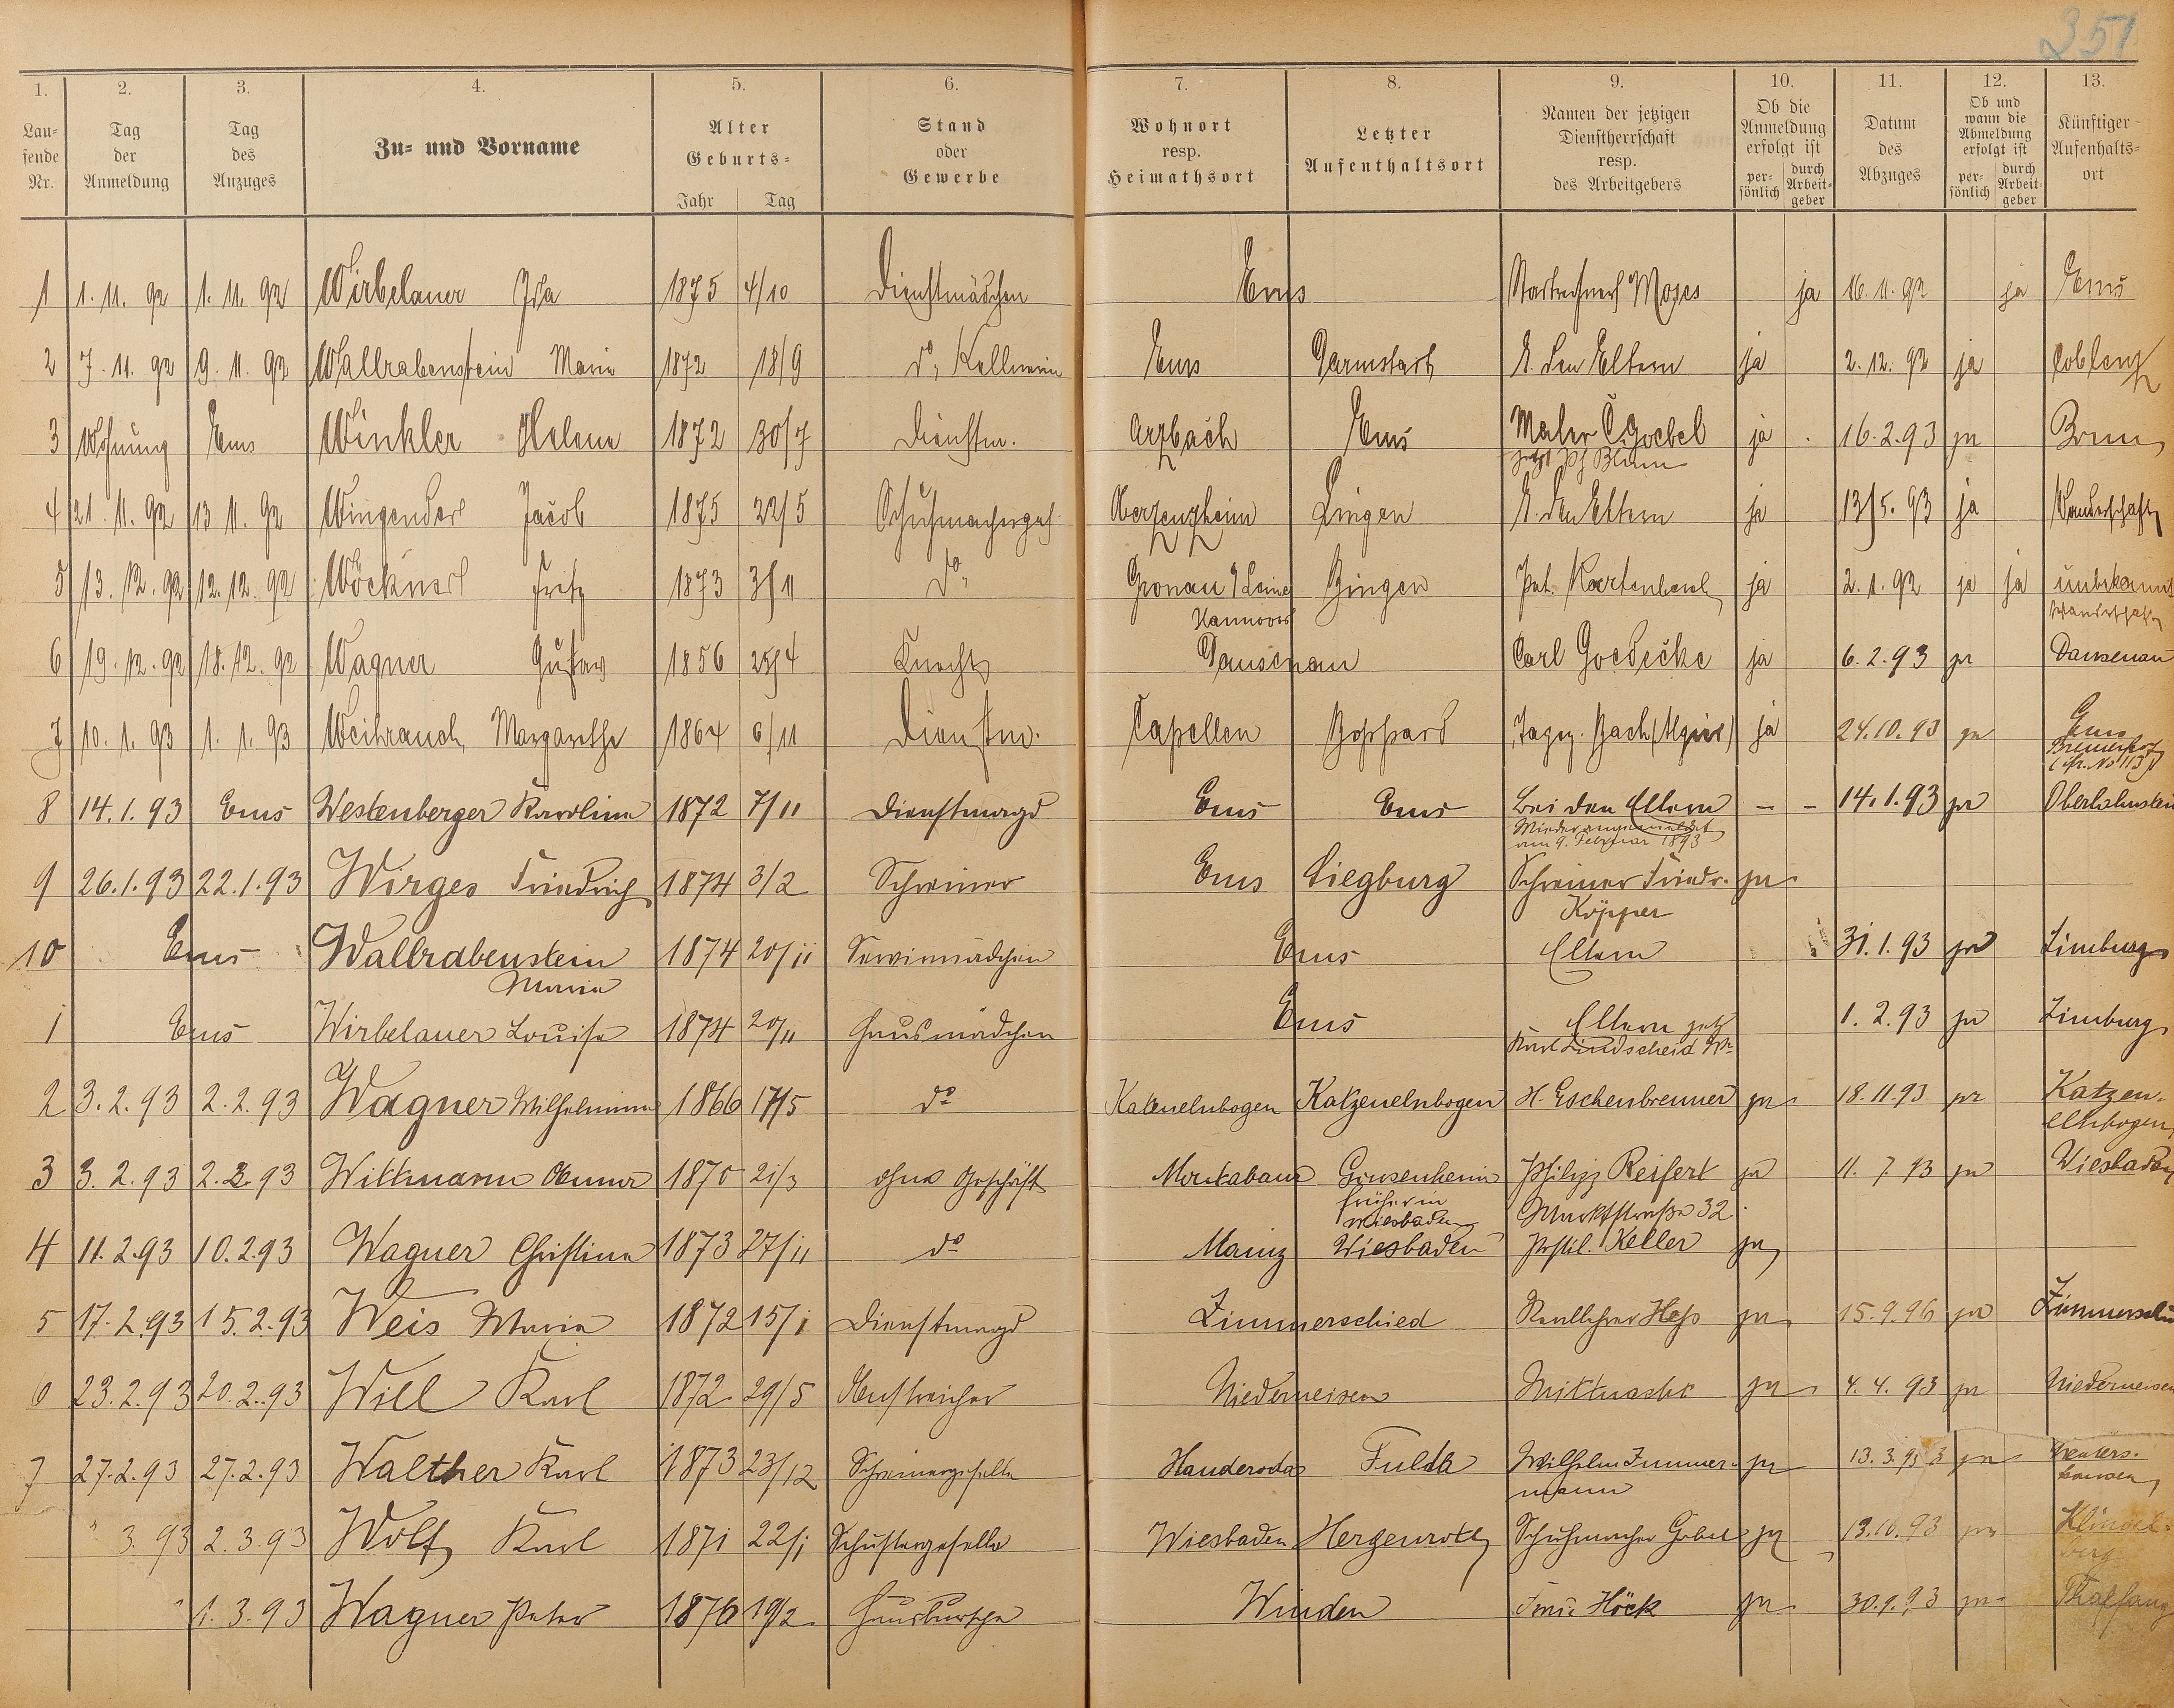 351
1. 2. 3. 4. 5. 6. 7. 8. 9. 10. 11. 12. 13.
Lau=
fende
Nr.
Tag
der
Anmeldung
Tag
des
Anzuges
Zu= und Vorname
Alter
Geburts=
Jahr Tag
Stand
oder
Gewerbe
Wohnort
resp.
Heimathsort
Letzter
Aufenthaltsort
Namen der jetzigen
Dienstherrschaft
resp.
des Arbeitgebers
Ob die
Anmeldung
erfolgt ist
per=
sönlich
durch
Arbeit=
geber
Datum
des
Abzuges
Ob und
wann die
Abmeldung
erfolgt ist
per=
sönlich
durch
Arbeit=
geber
Künftiger
Aufenthalts=
ort
1 1. 11. 92 1. 11. 92 Wirbelauer Ida 1875 4/10 Dienstmädchen Ems Moses ja 16. 11. 92 ja Ems
2 7. 11. 92 9. 11. 92 Wallrabenstein Marie 1872 18/9 do, Kellnerin Ems Darmstadt b. den Eltern ja 2. 12. 92 ja Coblenz
3 Wohnung Ems Winkler Helene 1872 30/7 Dienstm. Arzbach Ems Maler C. Goebel ja 16. 2. 93 ja Bonn
jetzt Blum
4 21. 11. 92 13 11. 92 Wingender Jacob 1875 22/5 Schuhmacherges. Oberzeuzheim Lingen b. den Eltern ja 13/5. 93 ja Wanderschaft
5 13. 12. 92 12. 12. 92 Wöckner Fritz 1873 3/11 do Gronau a/Leine Bingen Pet. ja 2. 1. 92 ja ja unbekannt
Hannover Wanderschaft
6 19. 12. 92 18. 12. 92 Wagner Gustav 1856 25/4 Knecht Dausenau Carl Goedecke ja 6. 2. 93 ja Dausenau
7 10. 1. 93 1. 1. 93 Weihrauch Margarethe 1864 6/11 Dienstm. Capellen Boppard Bach ja 24. 10. 93 ja Ems
8 14. 1. 93 Ems Westenberger Karoline 1872 7/11 Dienstmagd Ems Ems Bei den Eltern – – 14. 1. 93 ja Oberlahnstein
Wieder angemeldet
am 9. Februar 1893
9 26. 1. 93 22. 1. 93 Wirges Friedrich 1874 3/2 Schreiner Ems Siegburg Schreiner Friedr. ja
Köpper
10 Ems Wallrabenstein 1874 20/11 Servirmädchen Ems Eltern 31. 1. 93 ja Limburg
Maria
1 Ems Wirbelauer Louise 1874 20/11 Hausmädchen Ems Eltern jetzt 1. 2. 93 ja Limburg
Lindscheid
2 3. 2. 93 2. 2. 93 Wagner Wilhelmine 1866 17/5 do Katzenelnbogen Katzenelnbogen H. Eschenbrenner ja 18. 11. 93 ja Katzen-
elnbogen
3 3. 2. 93 2. 2. 93 Wittmann Anna 1870 21/3 ohne Geschäft Montabaur Gonsenheim Philipp Reifert ja 11. 7. 93 ja Wiesbaden
früher in Marktstraße 32.
Wiesbaden
4 11. 2. 93 10. 2. 93 Wagner Christine 1873 27/11 do Mainz Wiesbaden Postil. Keller ja
5 17. 2. 93 15. 2. 93 Weis Maria 1872 15/1 Dienstmagd Zimmerschied Reallehrer Heß ja 15. 9. 96 ja Zimmerschied
6 23. 2. 93 20. 2. 93 Will Karl 1872 29/5 Anstreicher Niederneisen Mittnacht ja 4. 4. 93 ja Niederneisen
7 27. 2. 93 27. 2. 93 Walther Karl 1873 23/12 Schreinergeselle Handeroda Fulda Wilhelm Zimmer- ja 13. 3. 93 ja
mann
3. 93 2. 3. 93 Wolf Karl 1871 22/1 Schustergeselle Wiesbaden Hergenroth Schuhmacher Göbel ja 13. 10. 93 ja
1. 3. 93 Wagner Peter 1876 19/2 Hausbursche Winden Höck ja 30. 9. 93 ja